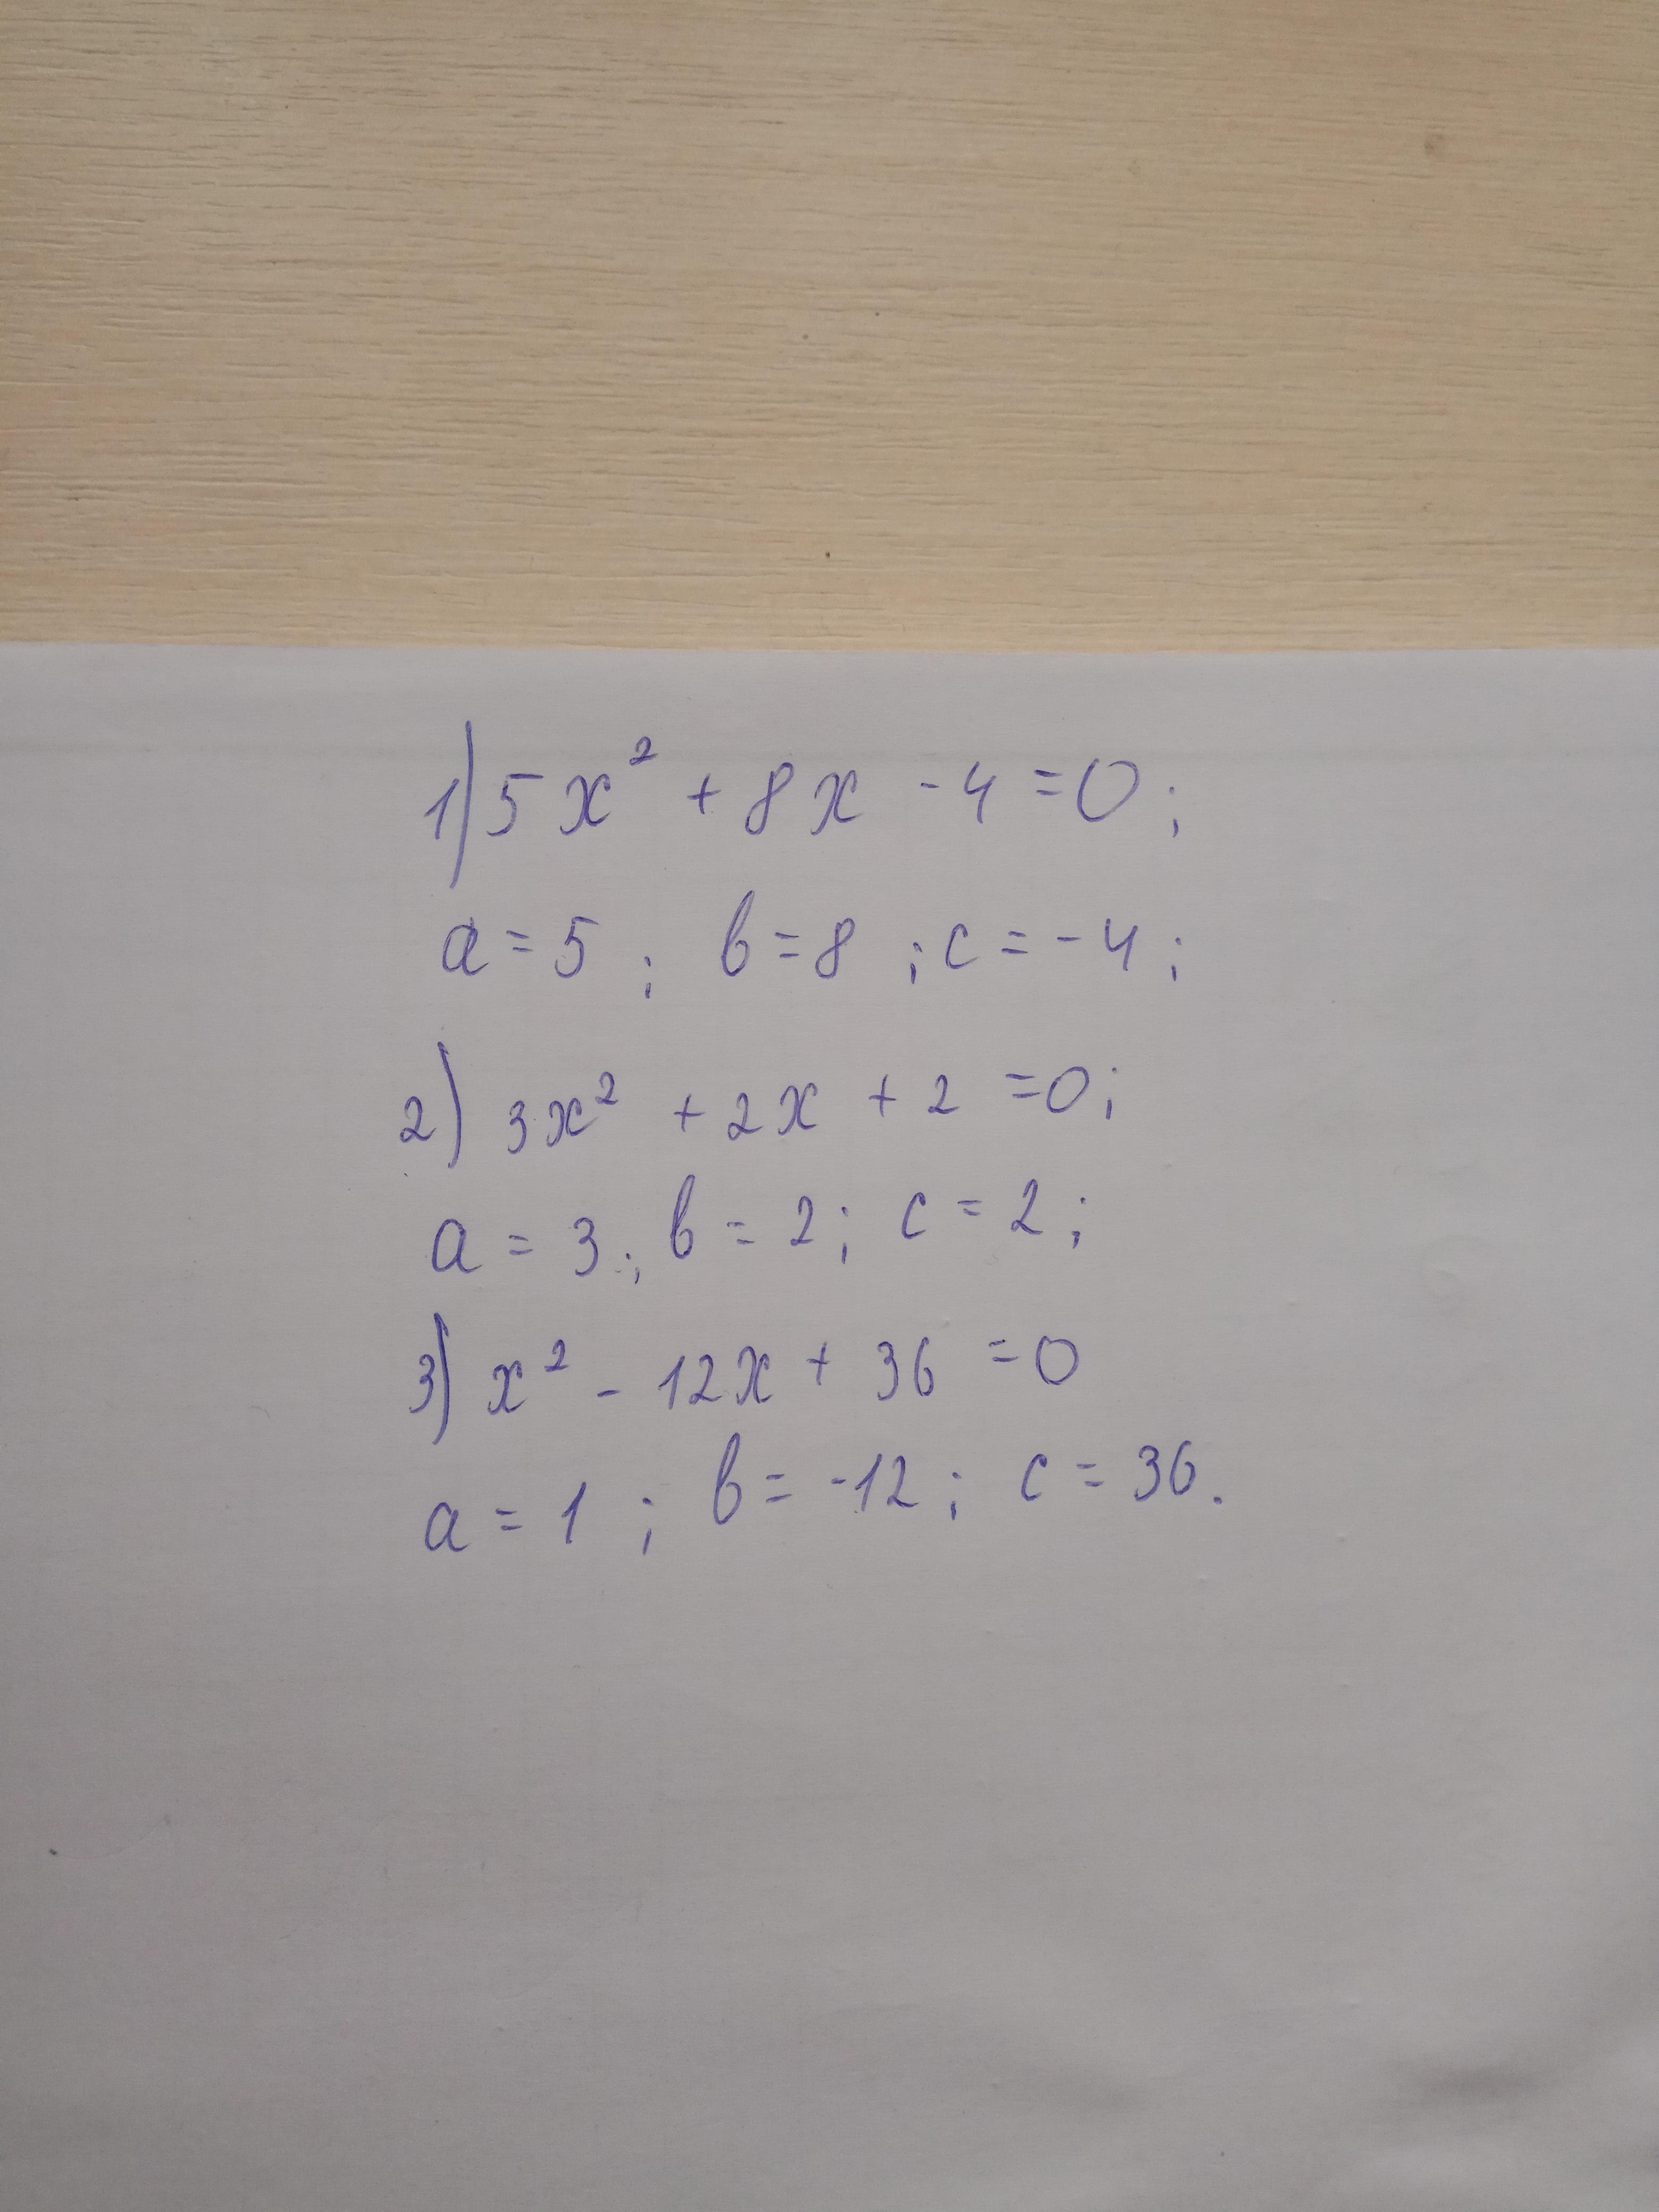 1) 5x² + 8x - 4 = 0;
a = 5; b = 8; c = -4;
2) 3x² + 2x + 2 = 0;
a = 3; b = 2; c = 2;
3) x² - 12x + 36 = 0
a = 1; b = -12; c = 36.